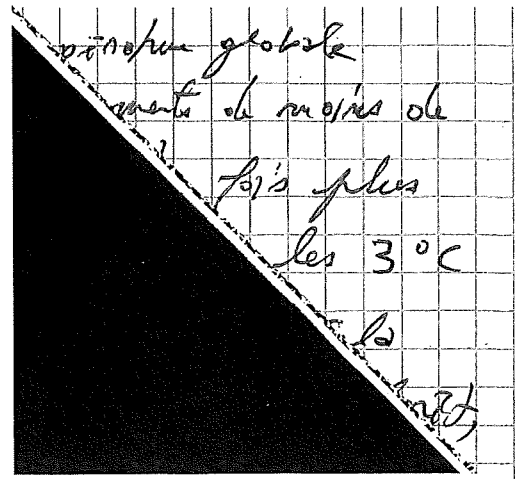 globale
ments de moins de
fois plus
les 3°C
la